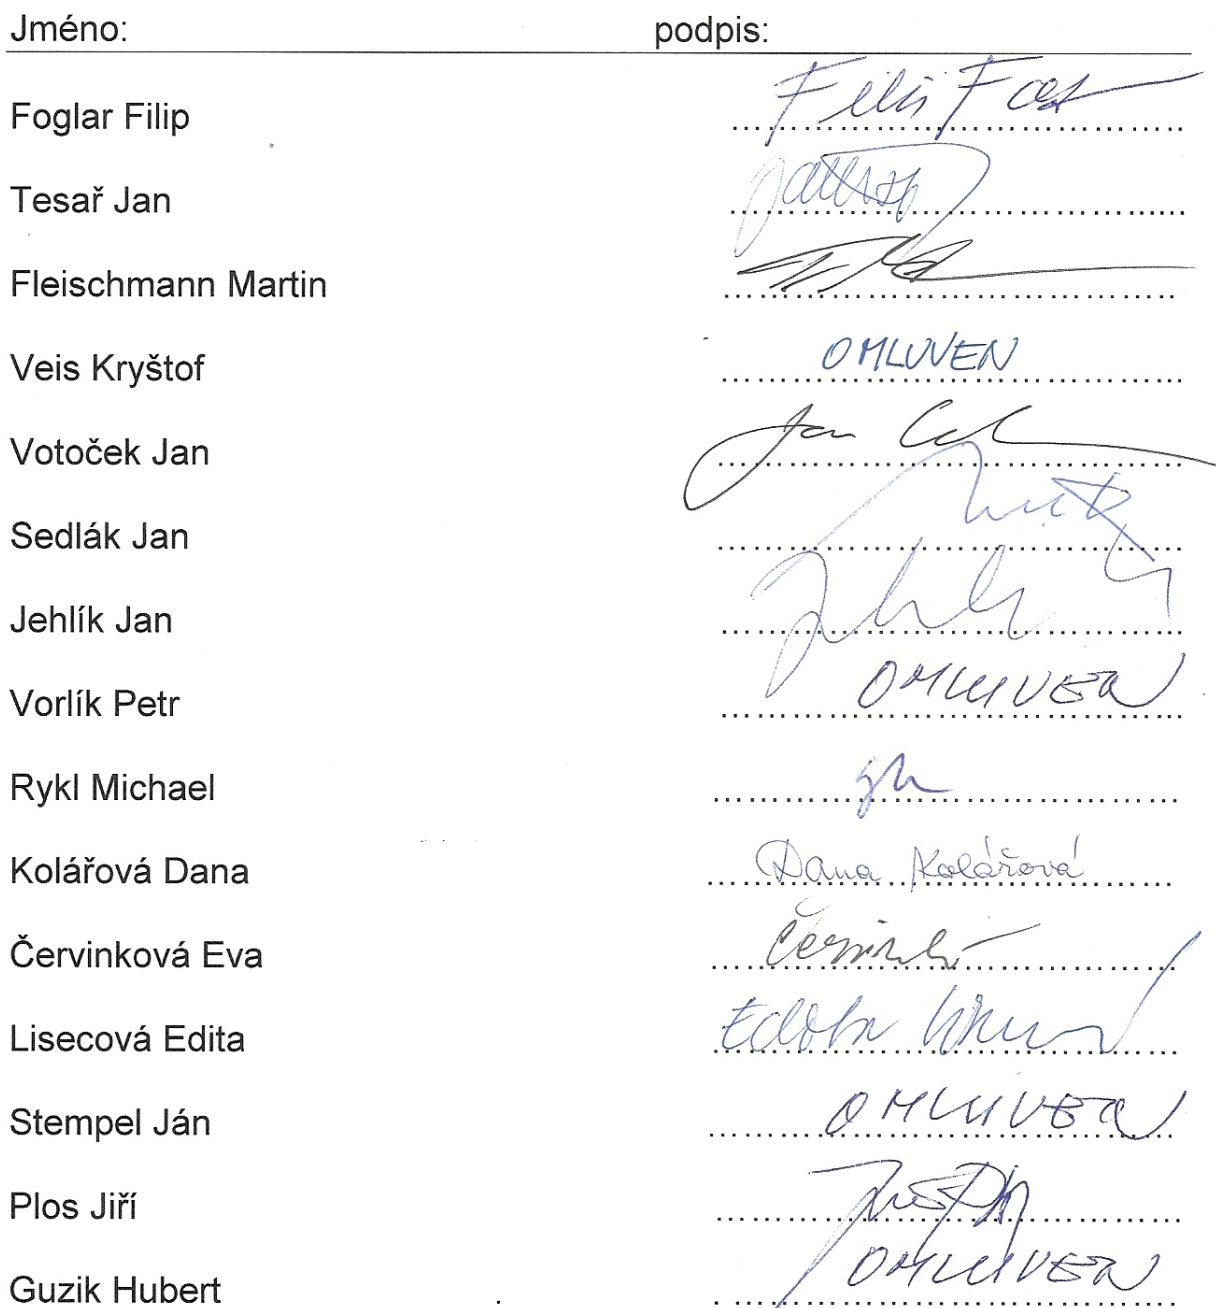 Jméno: podpis:
Foglar Filip Filip
Tesař Jan
Fleischmann Martin
Veis Kryštof OMLUVEN
Votoček Jan Jan
Sedlák Jan
Jehlík Jan
Vorlík Petr OMLUVEN
Rykl Michael
Kolářová Dana Dana Kolářová
Červinková Eva
Lisecová Edita Edita
Stempel Ján OMLUVEN
Plos Jiří
Guzik Hubert OMLUVEN